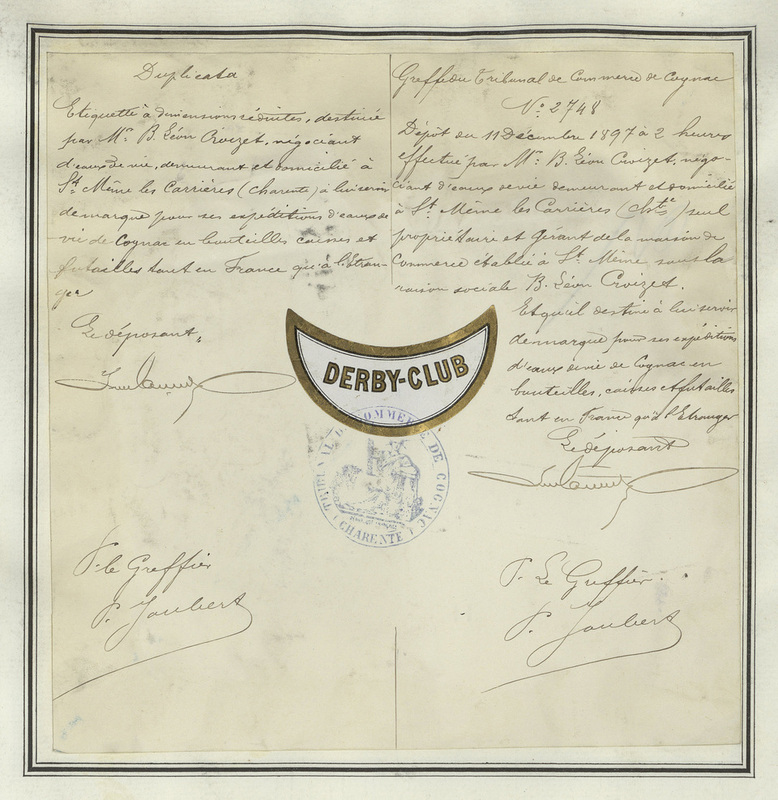 Duplicata
Etiquette à dimensions réduites, destinée
par Mr. B. Léon Croizet, négociant
d'eaux de vie, demeurant et domicilié à
St. Même les Carrières (Charente) à lui servir
de marque pour ses expéditions d'eaux de
vie de Cognac en bouteilles caisses et
futailles tant en France qu'à l'Etran-
ger
Le déposant,
P. le Greffier
P. Joubert
Greffe du Tribunal de Commerce de Cognac
No. 2748
Dépôt du 11 Décembre 1897 à 2 heures
effectué par Mr. B. Léon Croizet, négo-
ciant d'eaux de vie demeurant et domicilié
à St. Même les Carrières (Chte) seul
propriétaire et Gérant de la maison de
Commerce établie à St. Même, sous la
raison sociale B. Léon Croizet.
Et qu'il destine à lui servir
de marque pour ses expéditions
d'eaux de vie de Cognac en
bouteilles, caisses et futailles
tant en France qu'à l'Etranger
Le déposant
P. Le Greffier.
P. Joubert
DERBY-CLUB
TRIBUNAL DE COMMERCE DE COGNAC
(CHARENTE)